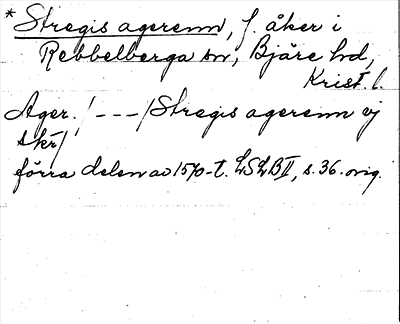 * Stregis agerenn, f åker i
Rebbelberga sn, Bjäre hd,
Krist. l.
Ager. / - - - / Stregis agerenn ej
skr /
förra delen av 1570-t. LSLB II, s. 36. orig.